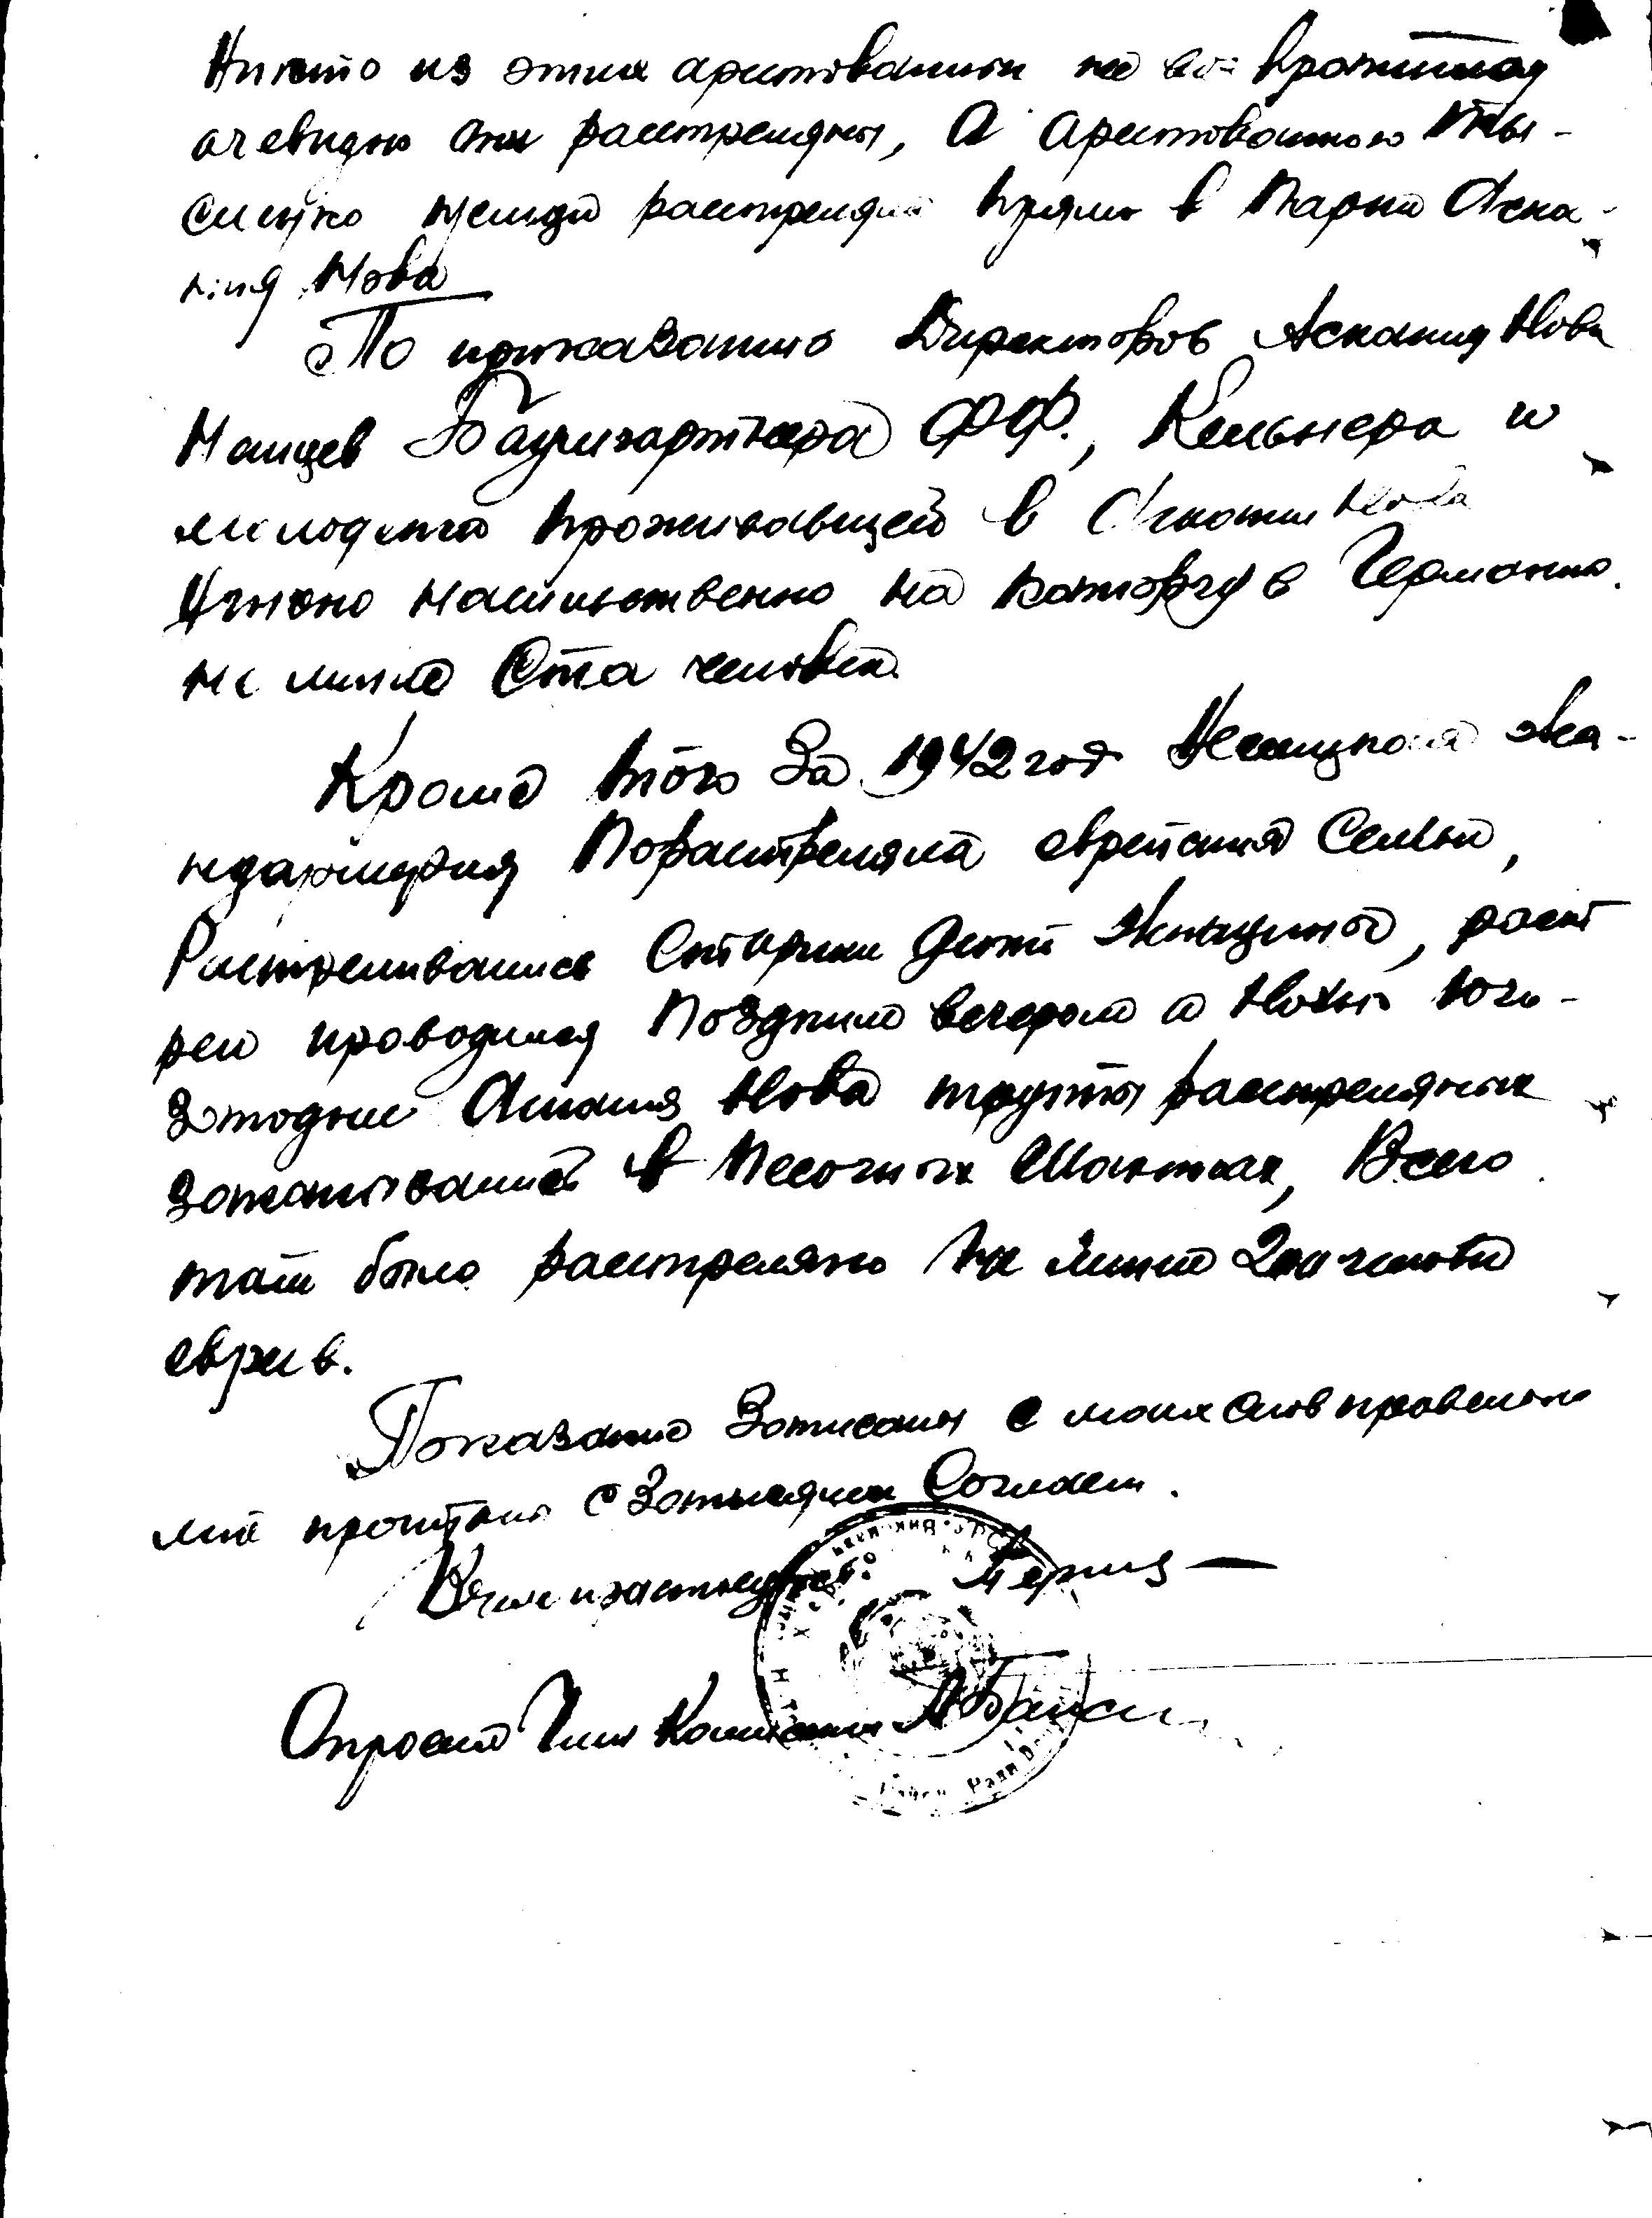 Никто из этих арестованых не возвратился
очевидно они растреляны, а арестованого Мы-
сливко немцы растреляли прямо в Парке Аска-
ния Нова
По приказанию Директоров Аскания Нова
Немцев Баумгартнера ФФ., Кельнера и
молодежи проживавшей в Аскании Нова
Угнано насильственно на каторгу в Германию
не мение Ста человек
Кроме того За 1942 год Немецкая жа-
ндармерия Порастреляла еврейския Семьи,
Растреливались Старики дети Женщины, раст
рел проводился Поздним вечером а Ночью Юго-
западнее Аскания Нова трупы растреляных
закапывались в Песочных Шахтах, Всего
там было растреляно не мение 200 человек
евреев.
Показание Записаны с моих слов правельно
мне прочитано с Записаным Согласен.
Опросил Член Комиссии